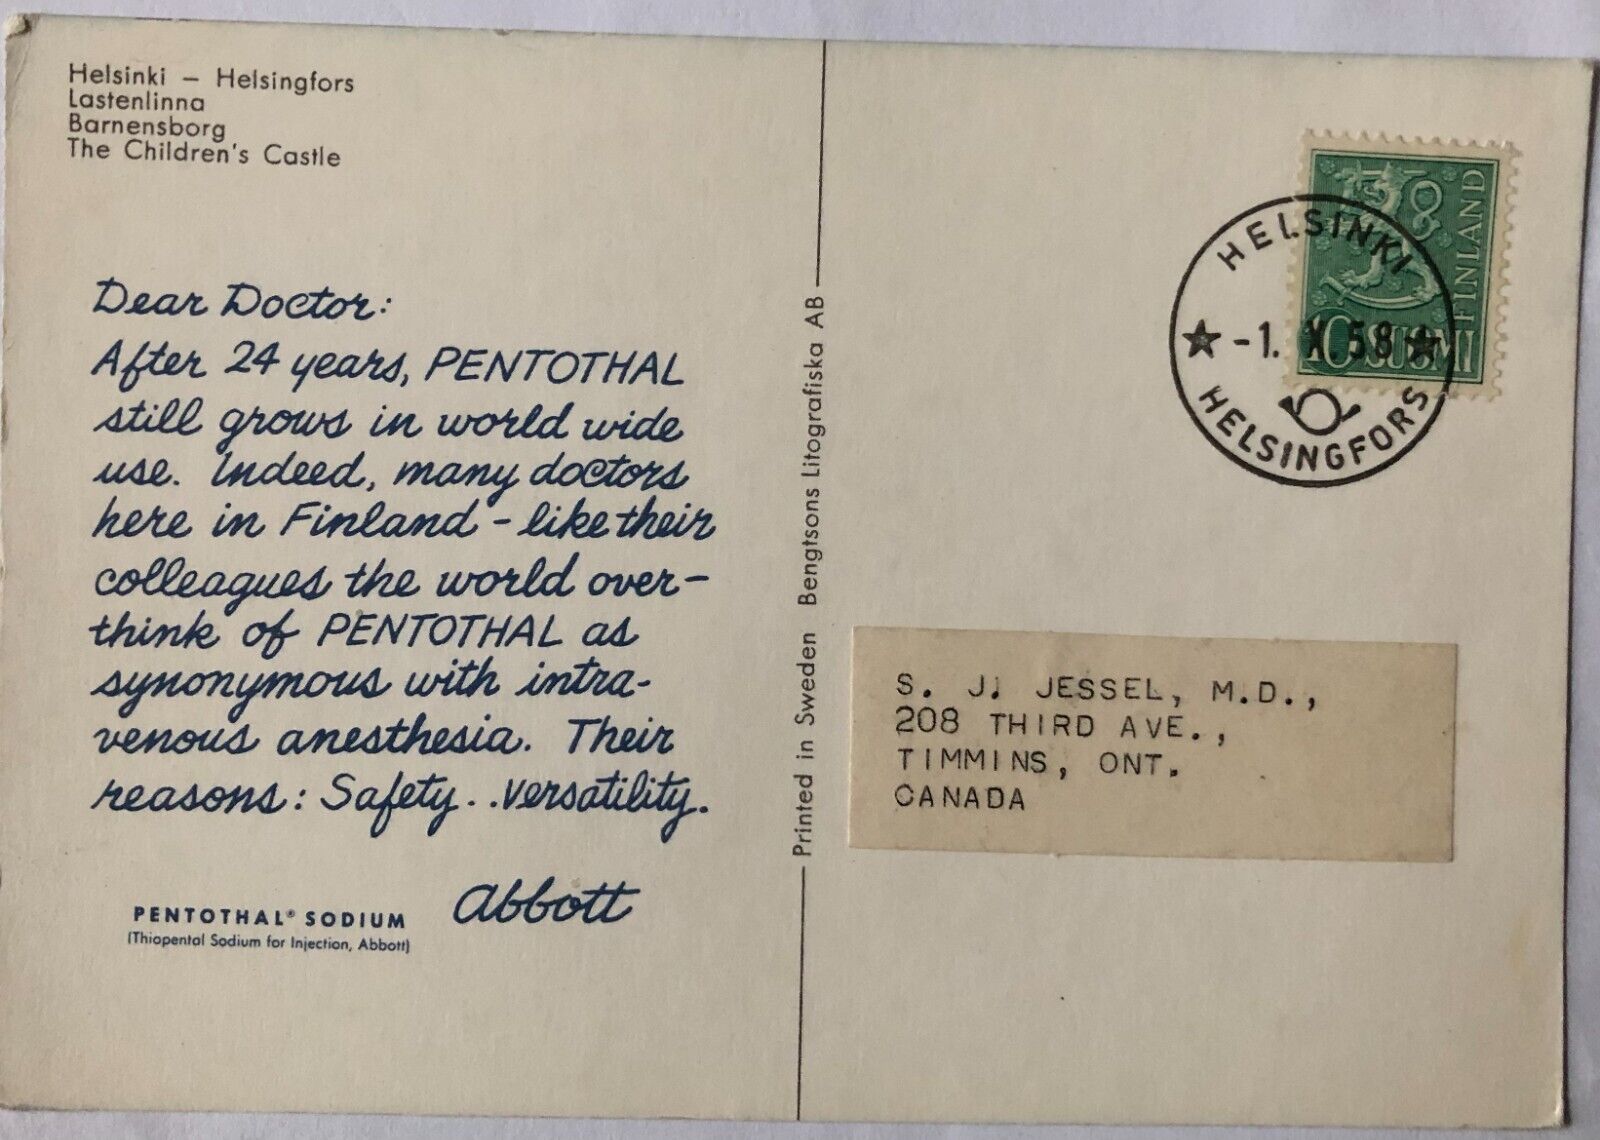 Helsinki – Helsingfors
Lastenlinna
Barnensborg
The Children's Castle
Dear Doctor:
After 24 years, PENTOTHAL
still grows in world wide
use. Indeed, many doctors
here in Finland – like their
colleagues the world over –
think of PENTOTHAL as
synonymous with intra-
venous anesthesia. Their
reasons: Safety . . versatility.
Abbott
PENTOTHAL® SODIUM
(Thiopental Sodium for Injection, Abbott)
Printed in Sweden Bengtsons Litografiska AB
FINLAND
10 SUOMI
HELSINKI
-1. X. 58
HELSINGFORS
S. J. JESSEL, M.D.,
208 THIRD AVE.,
TIMMINS, ONT.
CANADA